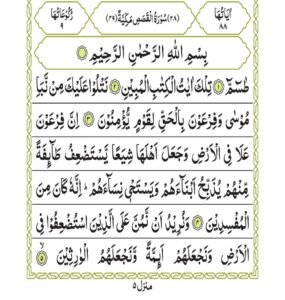 اٰیَاتُهَا ٨٨ (٢٨) سُوْرَةُ الْقَصَصِ مَكِّيَّةٌ (٤٩) رُكُوْعَاتُهَا ٩
بِسْمِ اللّٰهِ الرَّحْمٰنِ الرَّحِيْمِ
طٰسٓمّٓ ١ تِلْكَ اٰيٰتُ الْكِتٰبِ الْمُبِيْنِ ٢ نَتْلُوْا عَلَيْكَ مِنْ نَّبَاِ
مُوْسٰى وَفِرْعَوْنَ بِالْحَقِّ لِقَوْمٍ يُّؤْمِنُوْنَ ٣ اِنَّ فِرْعَوْنَ
عَلَا فِى الْاَرْضِ وَجَعَلَ اَهْلَهَا شِيَعًا يَّسْتَضْعِفُ طَآئِفَةً
مِّنْهُمْ يُذَبِّحُ اَبْنَآءَهُمْ وَيَسْتَحْىٖ نِسَآءَهُمْ ؕ اِنَّهٗ كَانَ مِنَ
الْمُفْسِدِيْنَ ٤ وَنُرِيْدُ اَنْ نَّمُنَّ عَلَى الَّذِيْنَ اسْتُضْعِفُوْا فِى
الْاَرْضِ وَنَجْعَلَهُمْ اَئِمَّةً وَّنَجْعَلَهُمُ الْوٰرِثِيْنَ ٥
منزل ٥